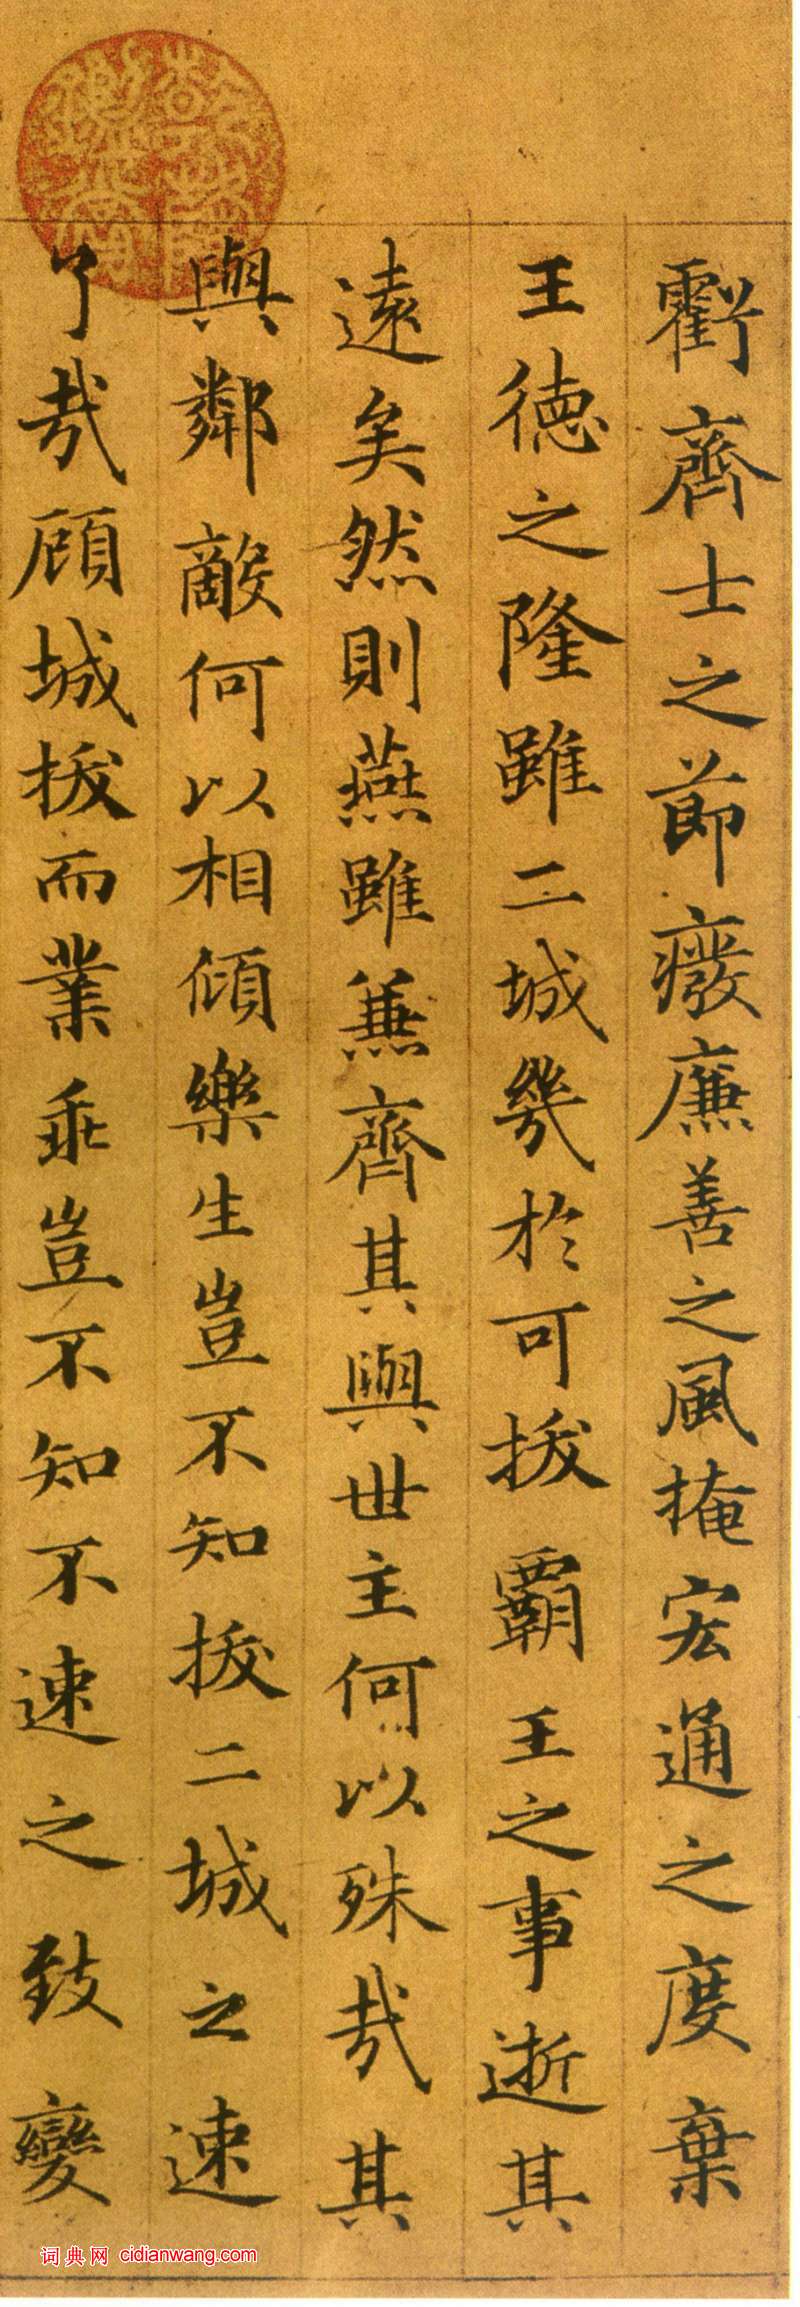 虧齊士之節廢廉善之風掩宏通之度棄
王德之隆雖二城幾於可拔霸王之事逝其
遠矣然則燕雖兼齊其與世主何以殊哉其
與鄰敵何以相傾樂生豈不知拔二城之速
了哉顧城拔而業乖豈不知不速之致變
词典网 cidianwang.com